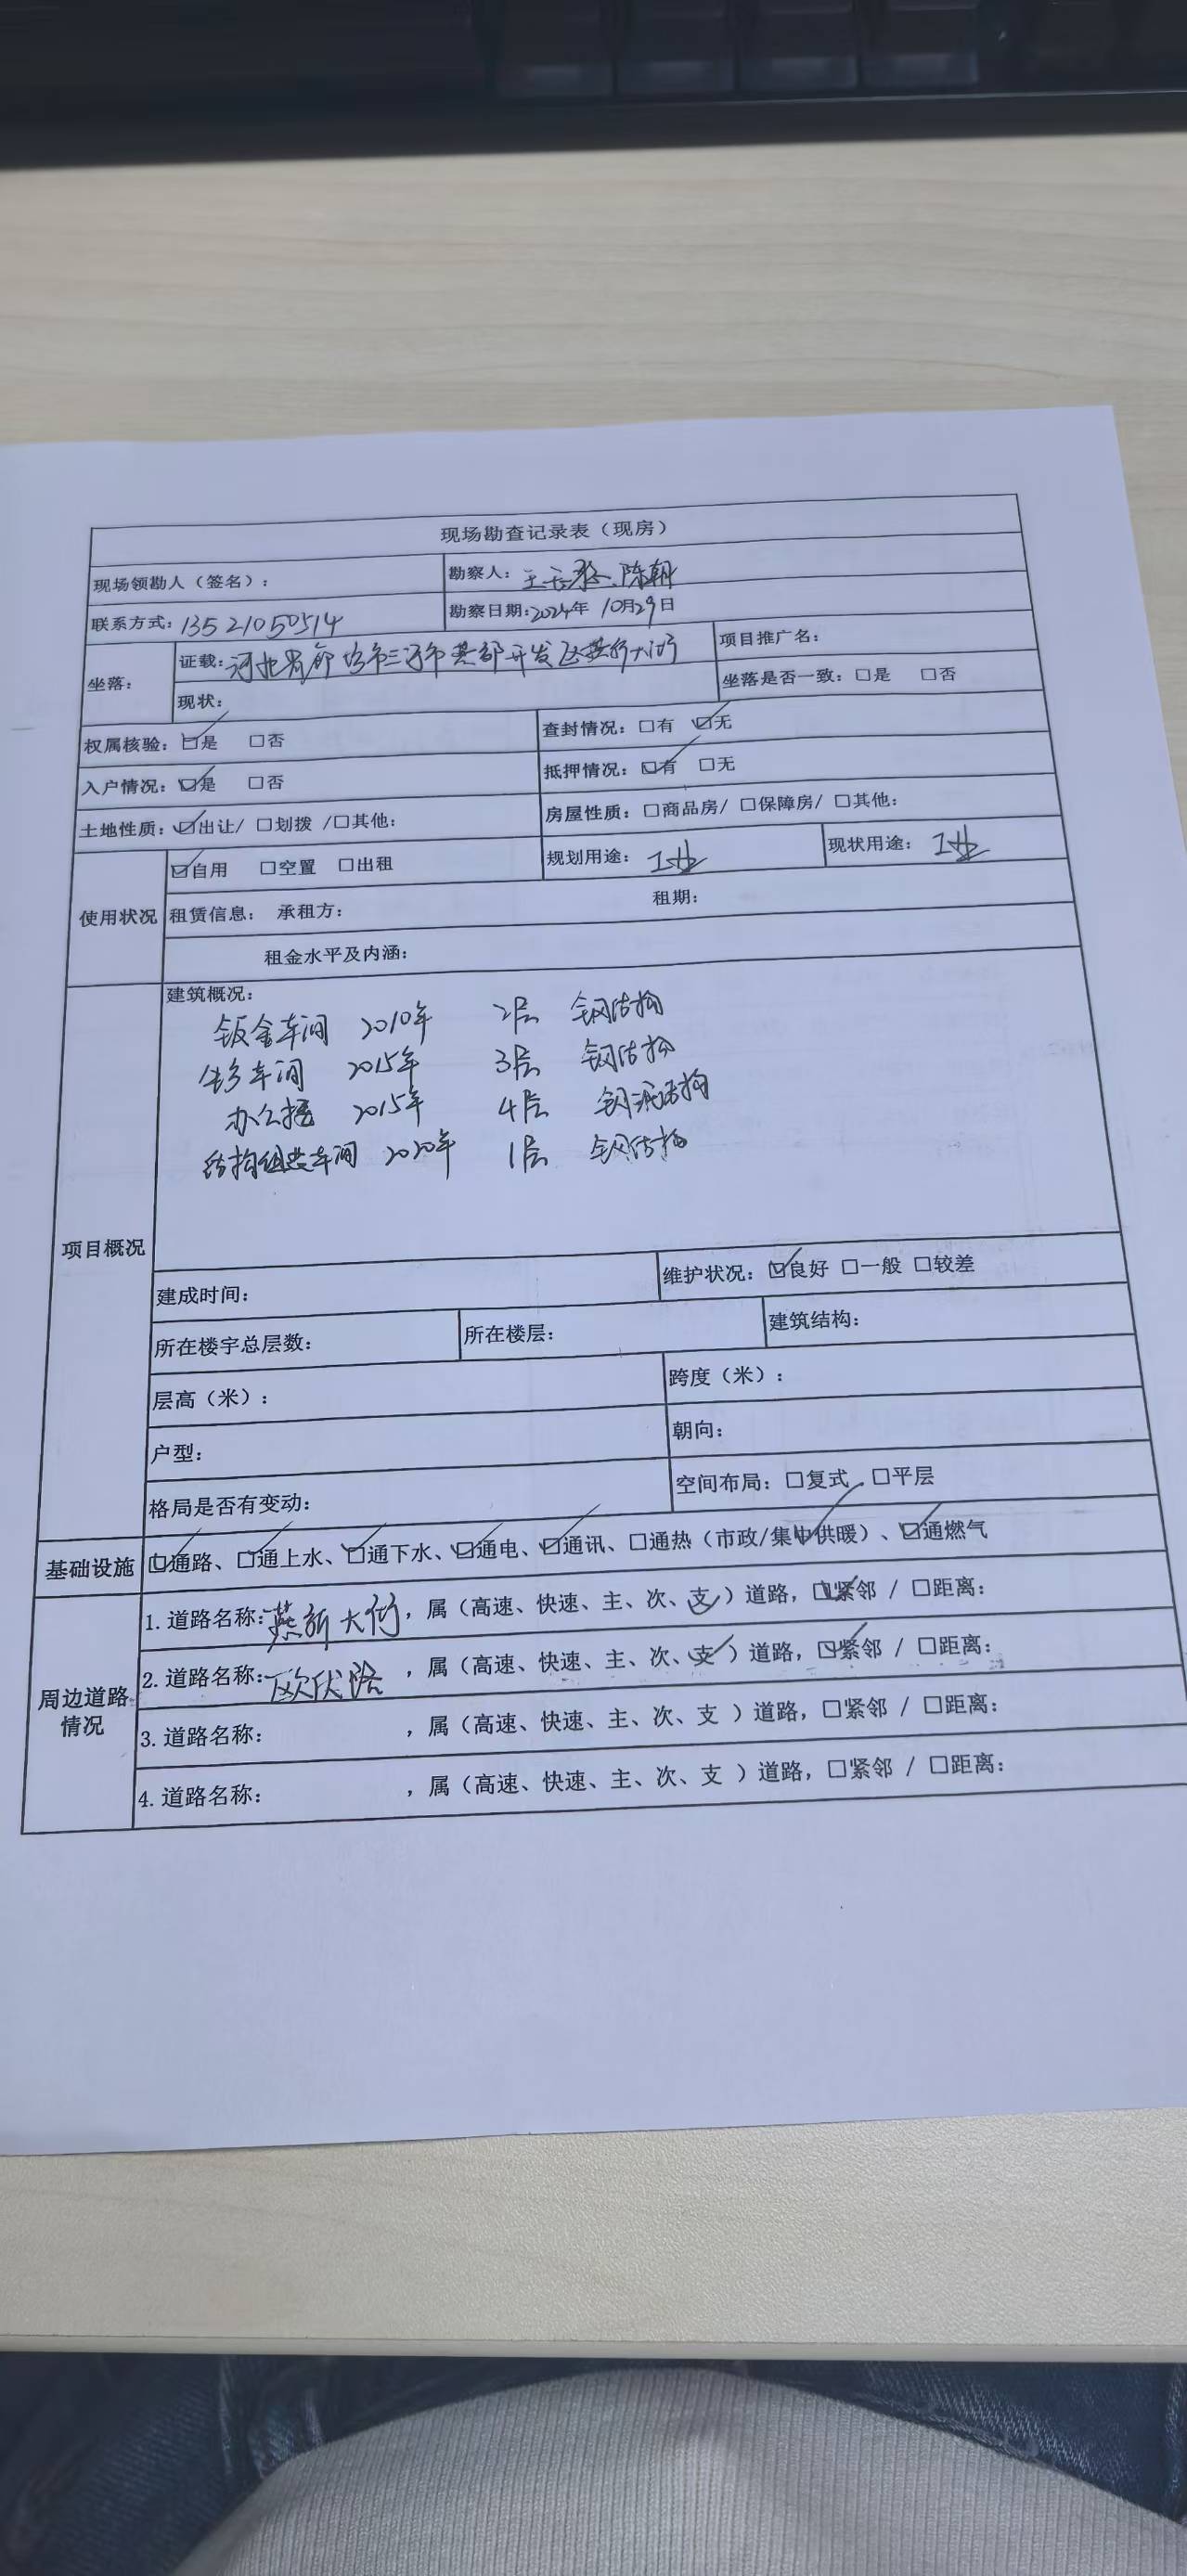 现场勘查记录表（现房）
现场领勘人（签名）：
勘察人：王 陈朝
联系方式：13521050514
勘察日期：2024年10月29日
坐落：
证载：河北省廊坊市三河市燕郊开发区燕新大街
项目推广名：
现状：
坐落是否一致：□是 □否
权属核验：☑是 □否
查封情况：□有 ☑无
入户情况：☑是 □否
抵押情况：☑有 □无
土地性质：☑出让/ □划拨 /□其他：
房屋性质：□商品房/ □保障房/ □其他：
使用状况
☑自用 □空置 □出租
规划用途：工业
现状用途：工业
租赁信息： 承租方： 租期：
租金水平及内涵：
项目概况
建筑概况：
钣金车间 2010年 2层 钢结构
车间 2015年 3层 钢结构
办公楼 2015年 4层 钢混结构
结构组装车间 2020年 1层 钢结构
建成时间：
维护状况：☑良好 □一般 □较差
所在楼宇总层数：
所在楼层：
建筑结构：
层高（米）：
跨度（米）：
户型：
朝向：
格局是否有变动：
空间布局：□复式 □平层
基础设施
☑通路、☑通上水、☑通下水、☑通电、☑通讯、□通热（市政/集中供暖）、☑通燃气
周边道路情况
1. 道路名称：燕新大街，属（高速、快速、主、次、支）道路，☑紧邻 / □距离：
2. 道路名称：欧伏路，属（高速、快速、主、次、支）道路，☑紧邻 / □距离：
3. 道路名称： ，属（高速、快速、主、次、支 ）道路，□紧邻 / □距离：
4. 道路名称： ，属（高速、快速、主、次、支 ）道路，□紧邻 / □距离：